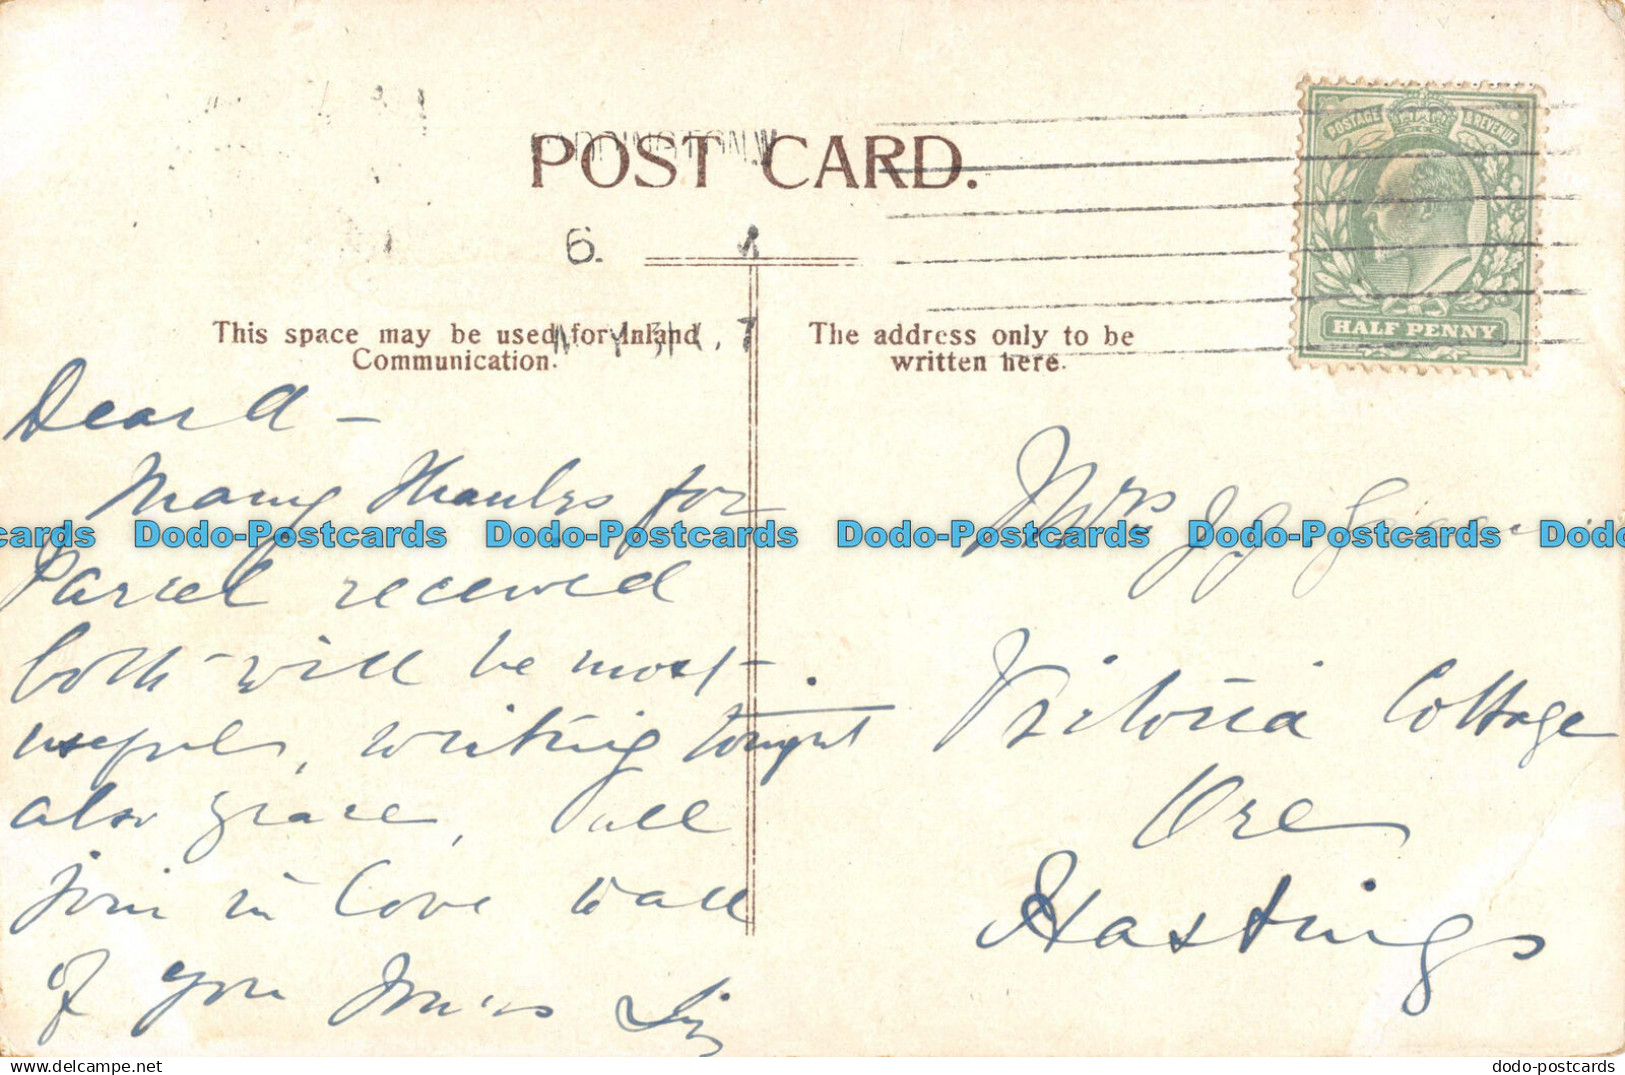 PADDINGTON.W
POST CARD.
POSTAGE & REVENUE
HALF PENNY
6.
This space may be used for Inland
Communication.
MY 31 7
The address only to be
written here.
Dear A —
Many thanks for
Parcel received
both will be most
useful, writing tonight
also Grace, all
join in love to all
of you Yours Liz
Mrs J J
Victoria Cottage
Ore
Hastings
Dodo-Postcards Dodo-Postcards Dodo-Postcards Dodo-Postcards Dodo-Postcards
delcampe.net
dodo-postcards